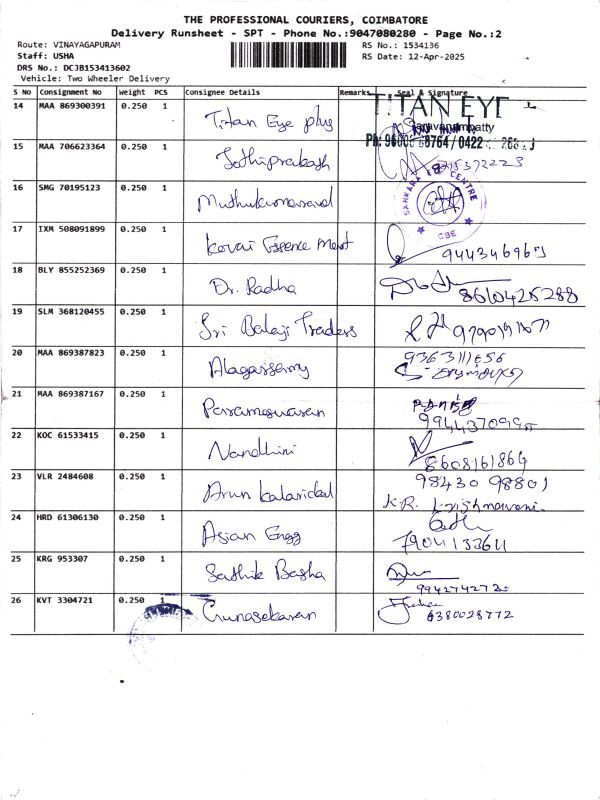 THE PROFESSIONAL COURIERS, COIMBATORE
Delivery Runsheet - SPT - Phone No.:9047080280 - Page No.:2
Route: VINAYAGAPURAM RS No.: 1534136
Staff: USHA RS Date: 12-Apr-2025
DRS No.: DCJB153413602
Vehicle: Two Wheeler Delivery
S No Consignment No Weight PCS Consignee Details Remarks Seal & Signature
14 MAA 869300391 0.250 1 Titan Eye plus TITAN EYE
Saravanampatty
15 MAA 706623364 0.250 1 Jothiprakash
16 SMG 70195123 0.250 1 Muthukumarasal SANKARA EYE CENTRE CBE
17 IXM 508091899 0.250 1 Kovai Essence Mart
18 BLY 855252369 0.250 1 Dr. Radha 8610425288
19 SLM 368120455 0.250 1 Sri Balaji Traders
20 MAA 869387823 0.250 1 Alagarsamy 9363111656
21 MAA 869387167 0.250 1 Parameswaran
22 KOC 61533415 0.250 1 Nandhini 8608161864
23 VLR 2484608 0.250 1 Arun Kalarickal 98430 98801
K.R. Krishnaveni
24 HRD 61306130 0.250 1 Asian Engg 7904133641
25 KRG 953307 0.250 1 Sathik Basha
26 KVT 3304721 0.250 1 Gunasekaran 6380028772